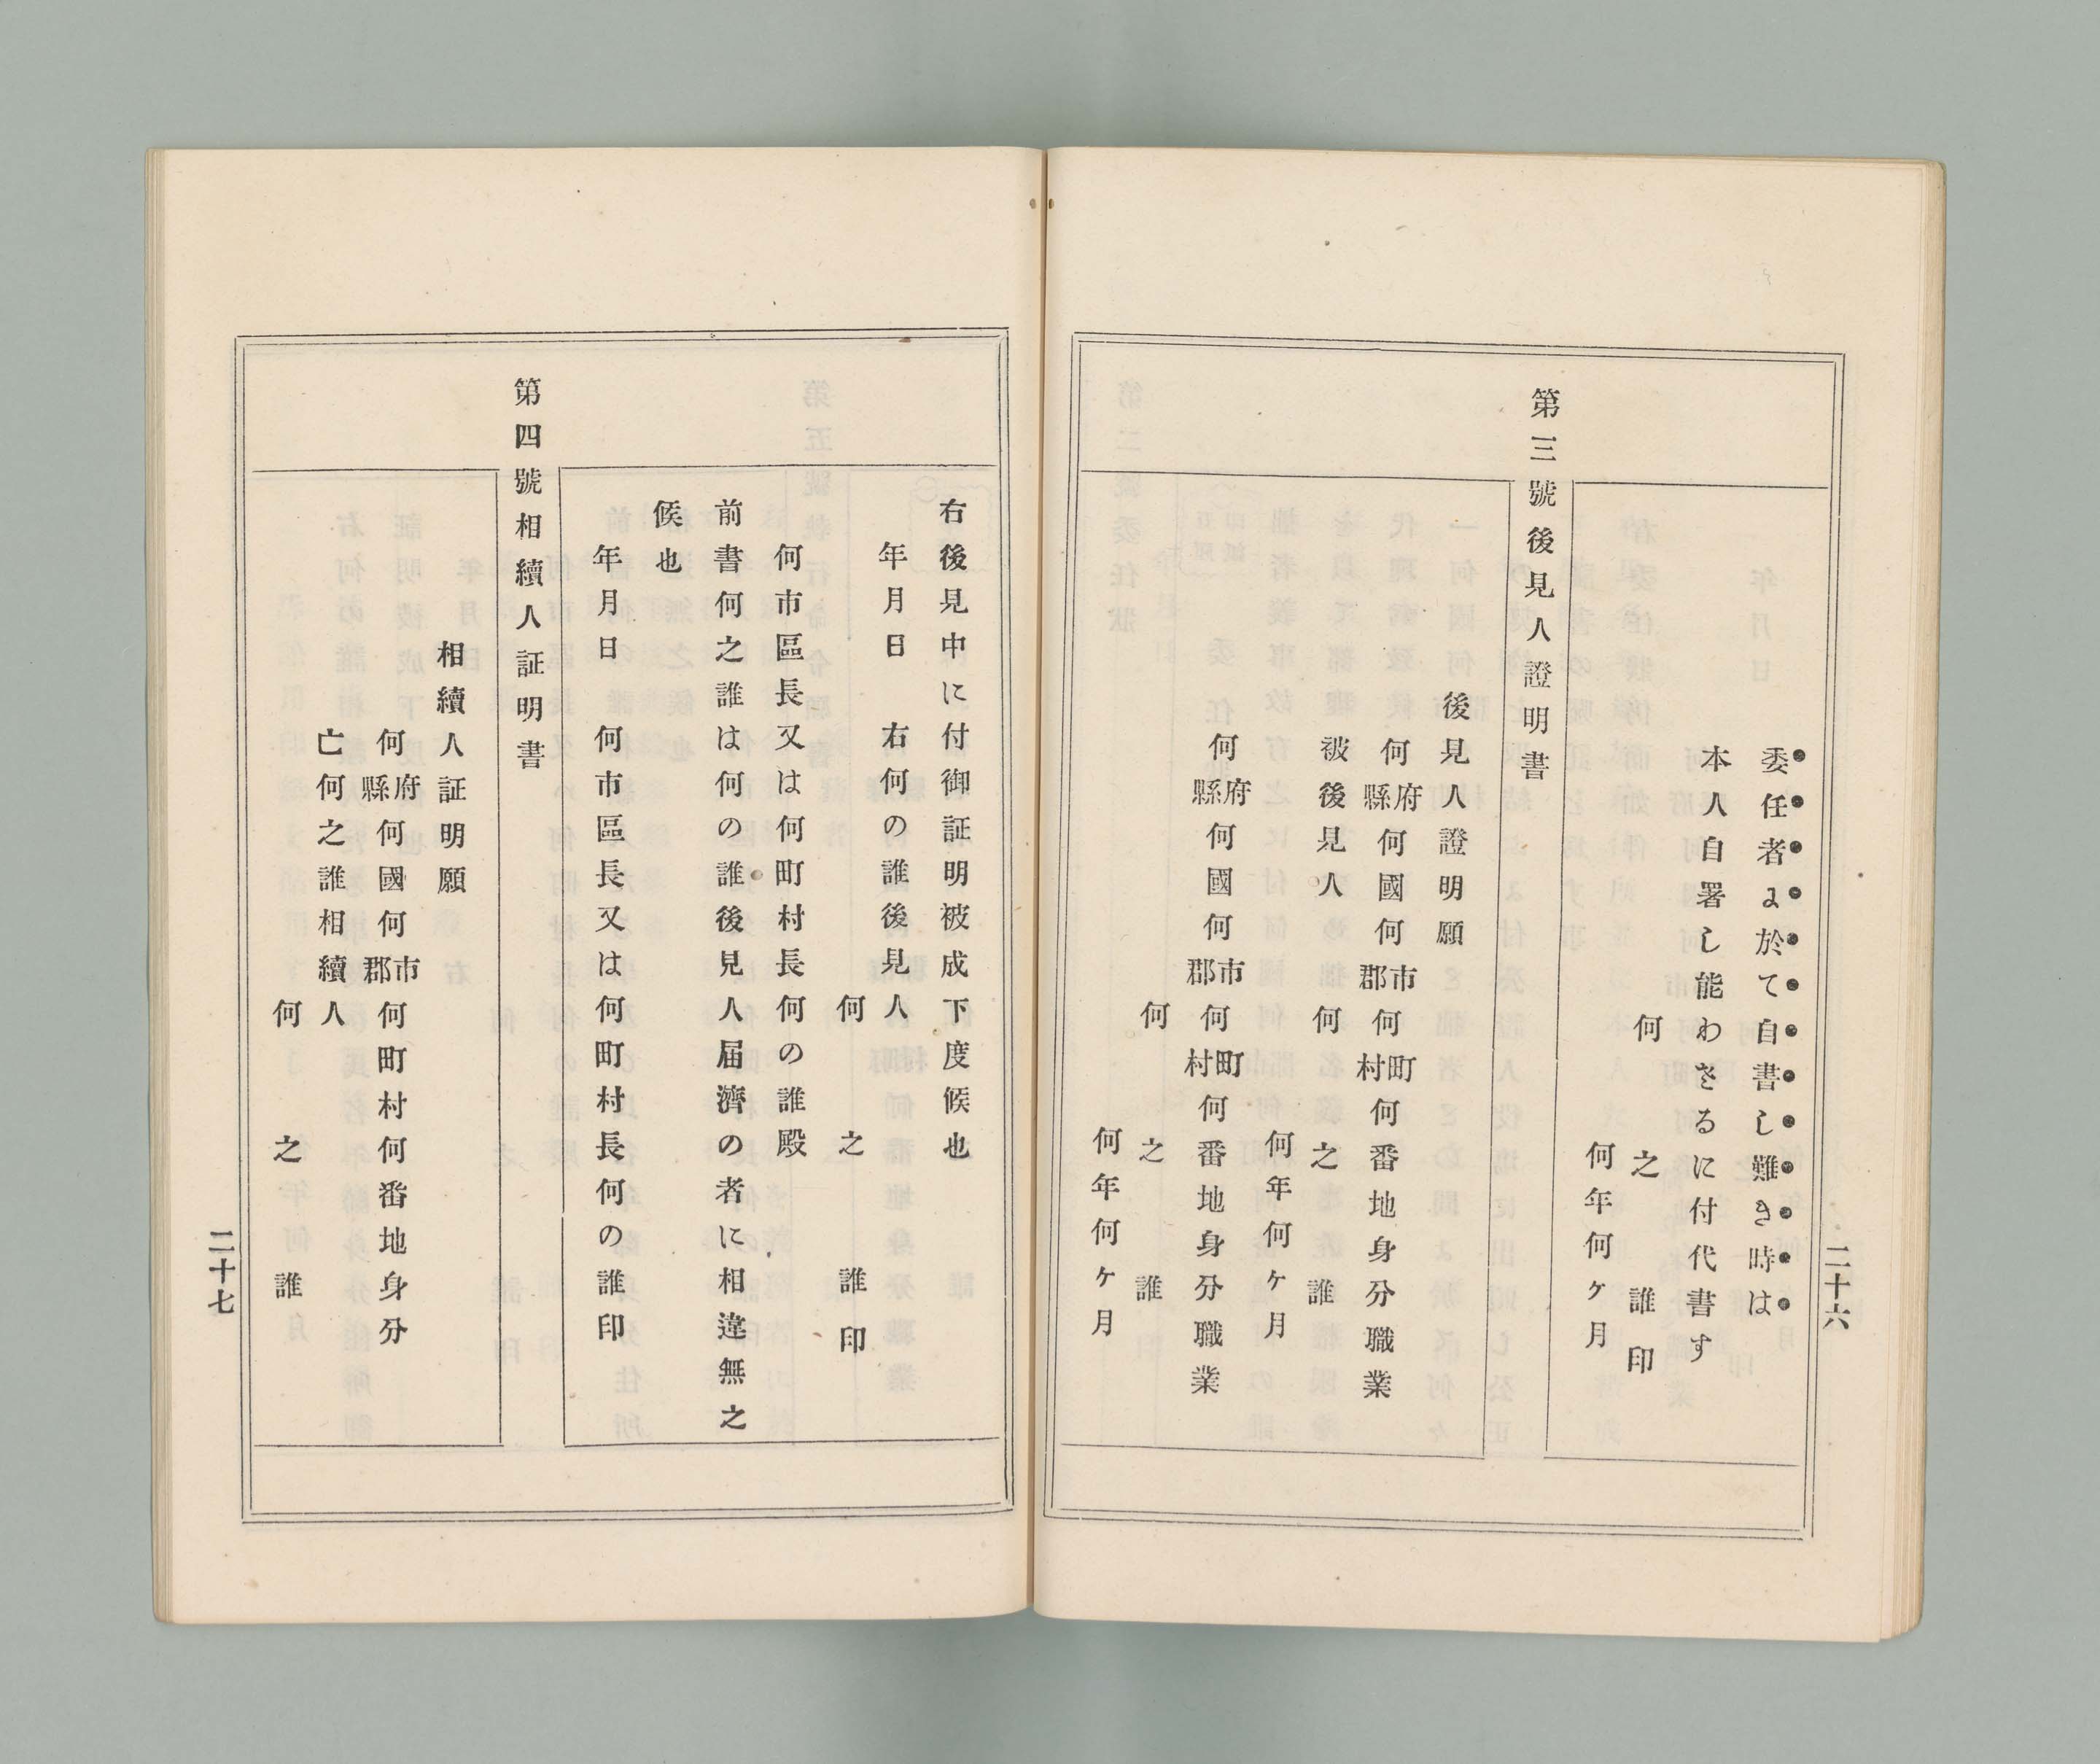 委任者ょ於て自書し難き時は
本人自署し能わさるに付代書す
何之誰印
何年何ケ月
第三號後見人證明書
後見人證明願
何府縣何國何市郡何町村何番地身分職業
被後見人何之誰
何年何ケ月
何府縣何國何市郡何町村何番地身分職業
何之誰
何年何ケ月
二十六
右後見中に付御証明被成下度候也
年月日右何の誰後見人
何之誰印
何市區長又は何町村長何の誰殿
前書何之誰は何の誰後見人届濟の者に相違無之
候也
年月日何市區長又は何町村長何の誰印
第四號相續人証明書
相續人証明願
何府縣何國何市郡何町村何番地身分
亡何之誰相續人
何之誰
二十七